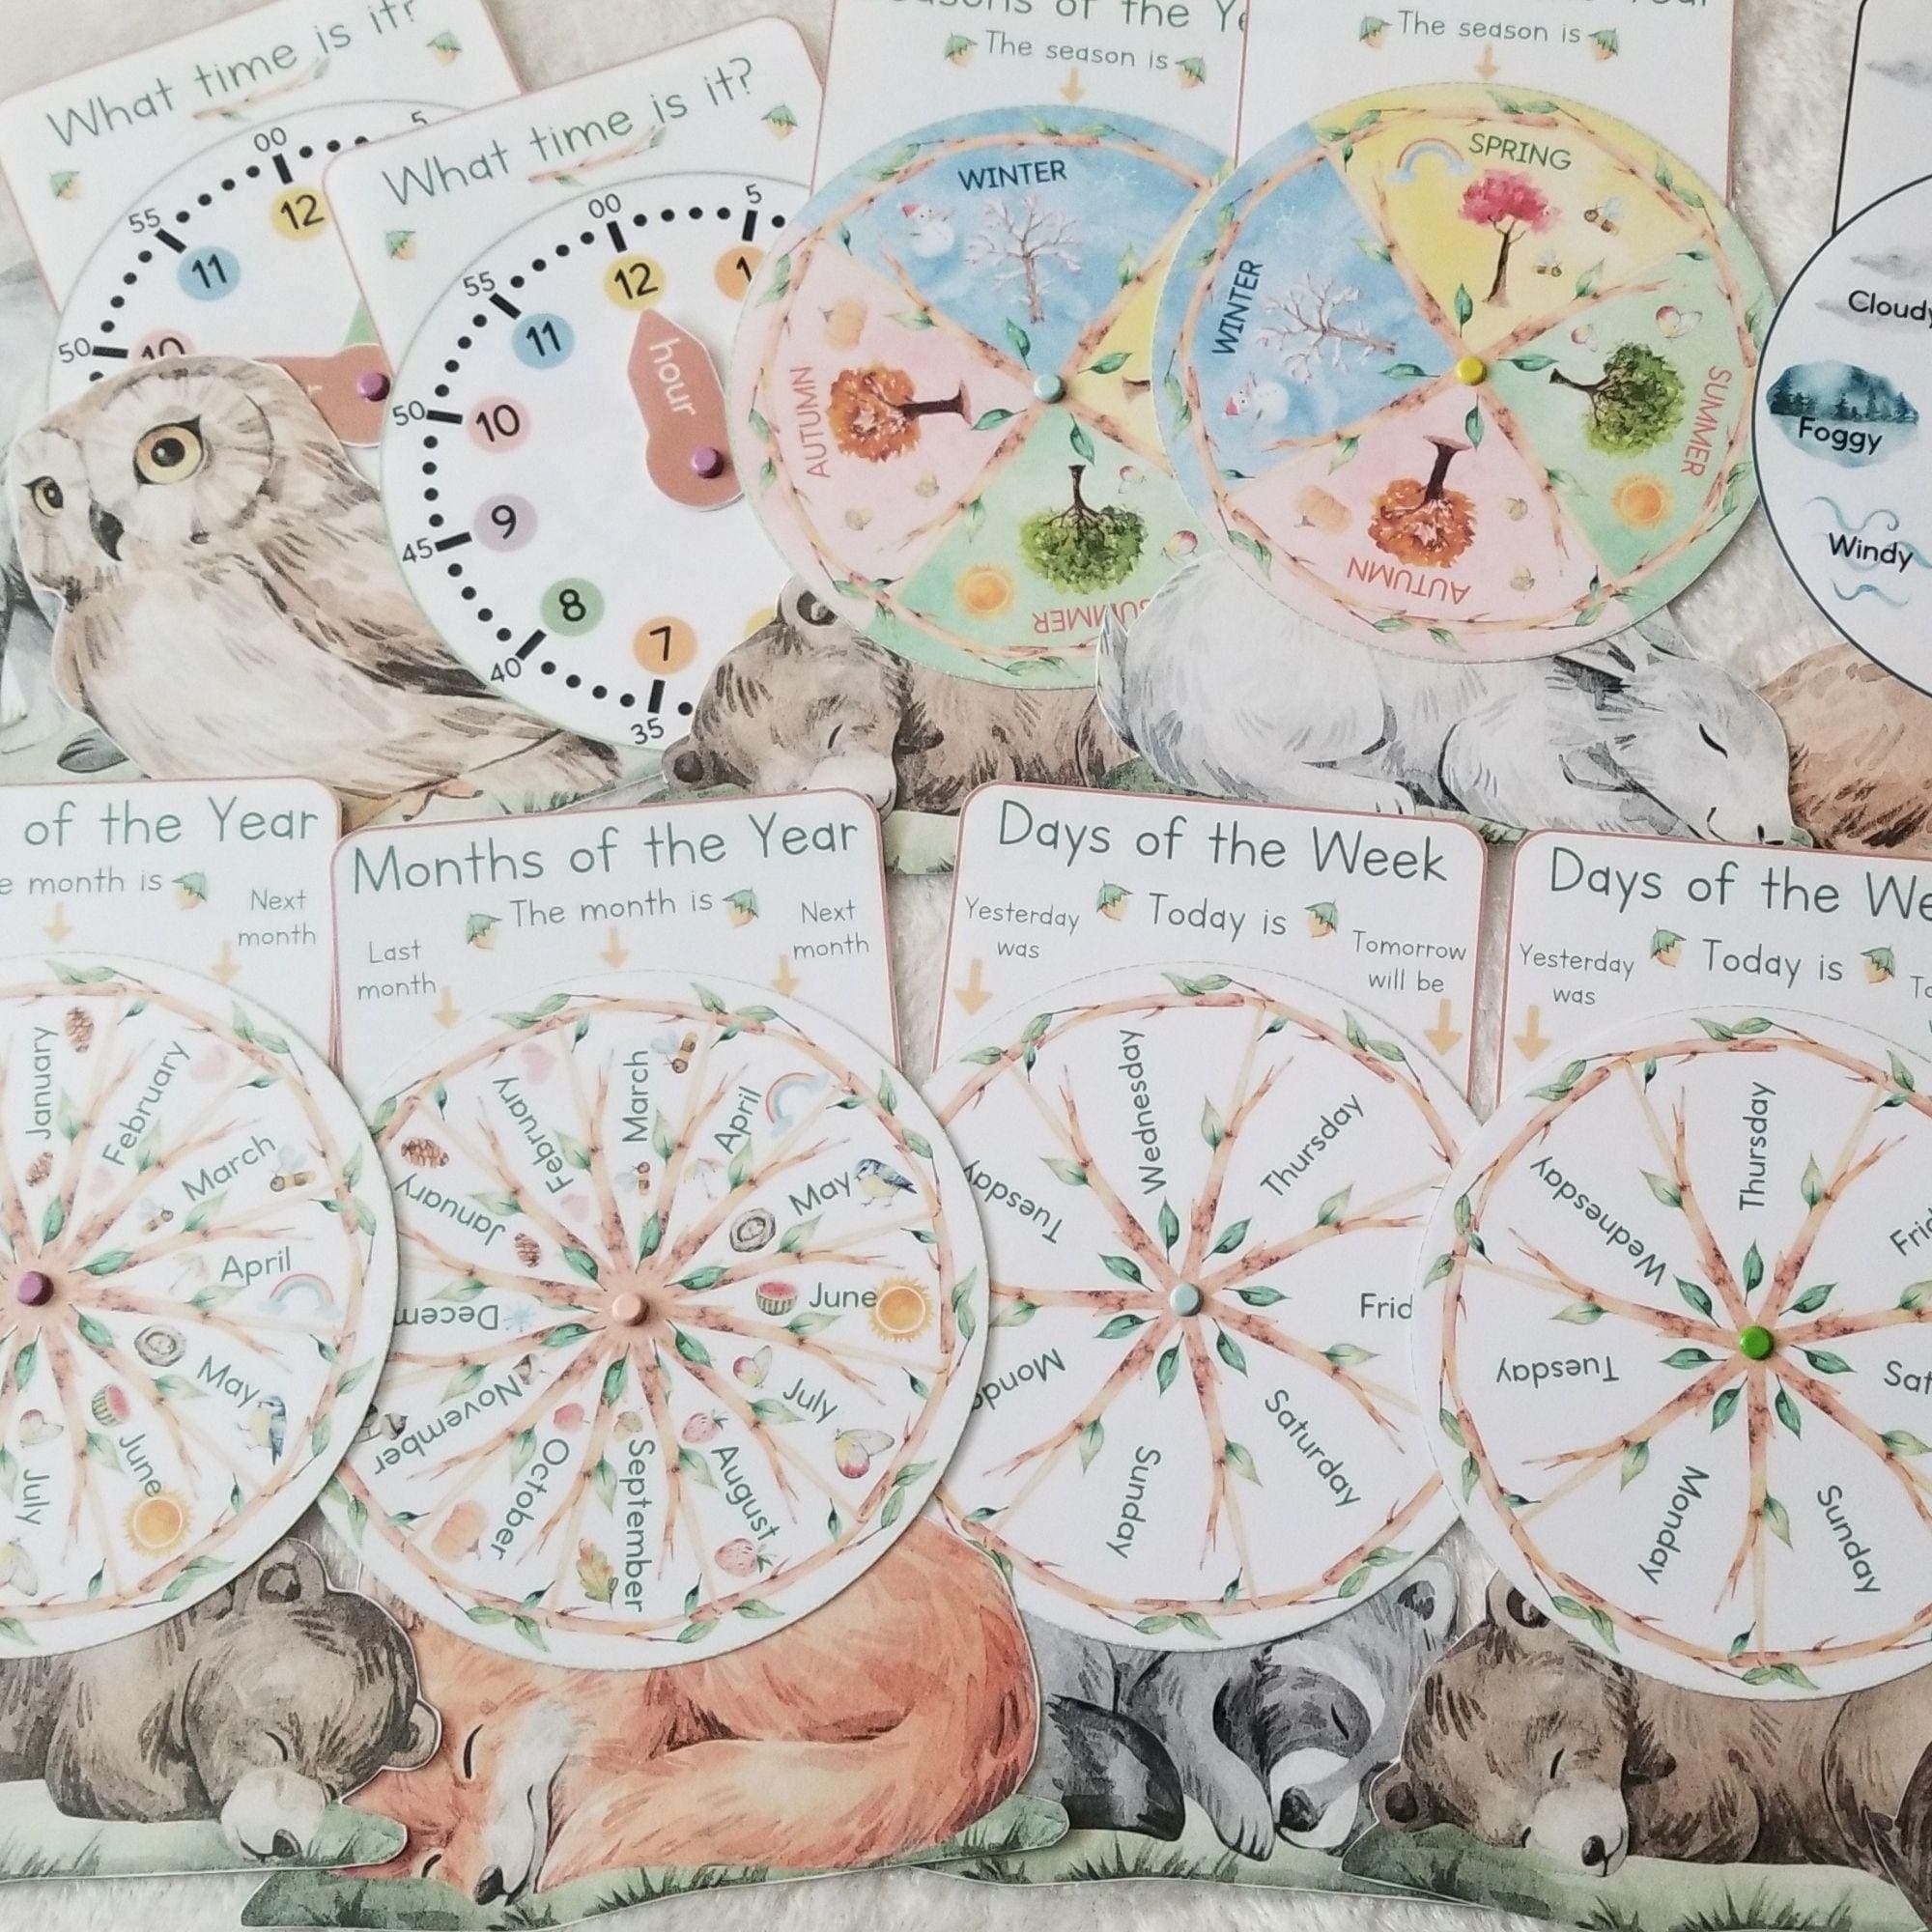 What time is it?
00
5
55
12
11
50
10
What time is it?
00
5
55
12
1
11
hour
50
10
9
45
8
40
7
35
of the
The season is
WINTER
AUTUMN
SUMMER
The season is
SPRING
WINTER
SUMMER
AUTUMN
Cloudy
Foggy
Windy
of the Year
month is
Next
month
January
February
March
April
May
June
July
Months of the Year
The month is
Last
month
Next
month
January
February
March
April
May
June
July
August
September
October
November
Decem
Days of the Week
Yesterday
was
Today is
Tomorrow
will be
Wednesday
Thursday
Tuesday
Frid
Mond
Saturday
Sunday
Days of the We
Yesterday
was
Today is
Thursday
Wednesday
Frid
Tuesday
Sat
Monday
Sunday